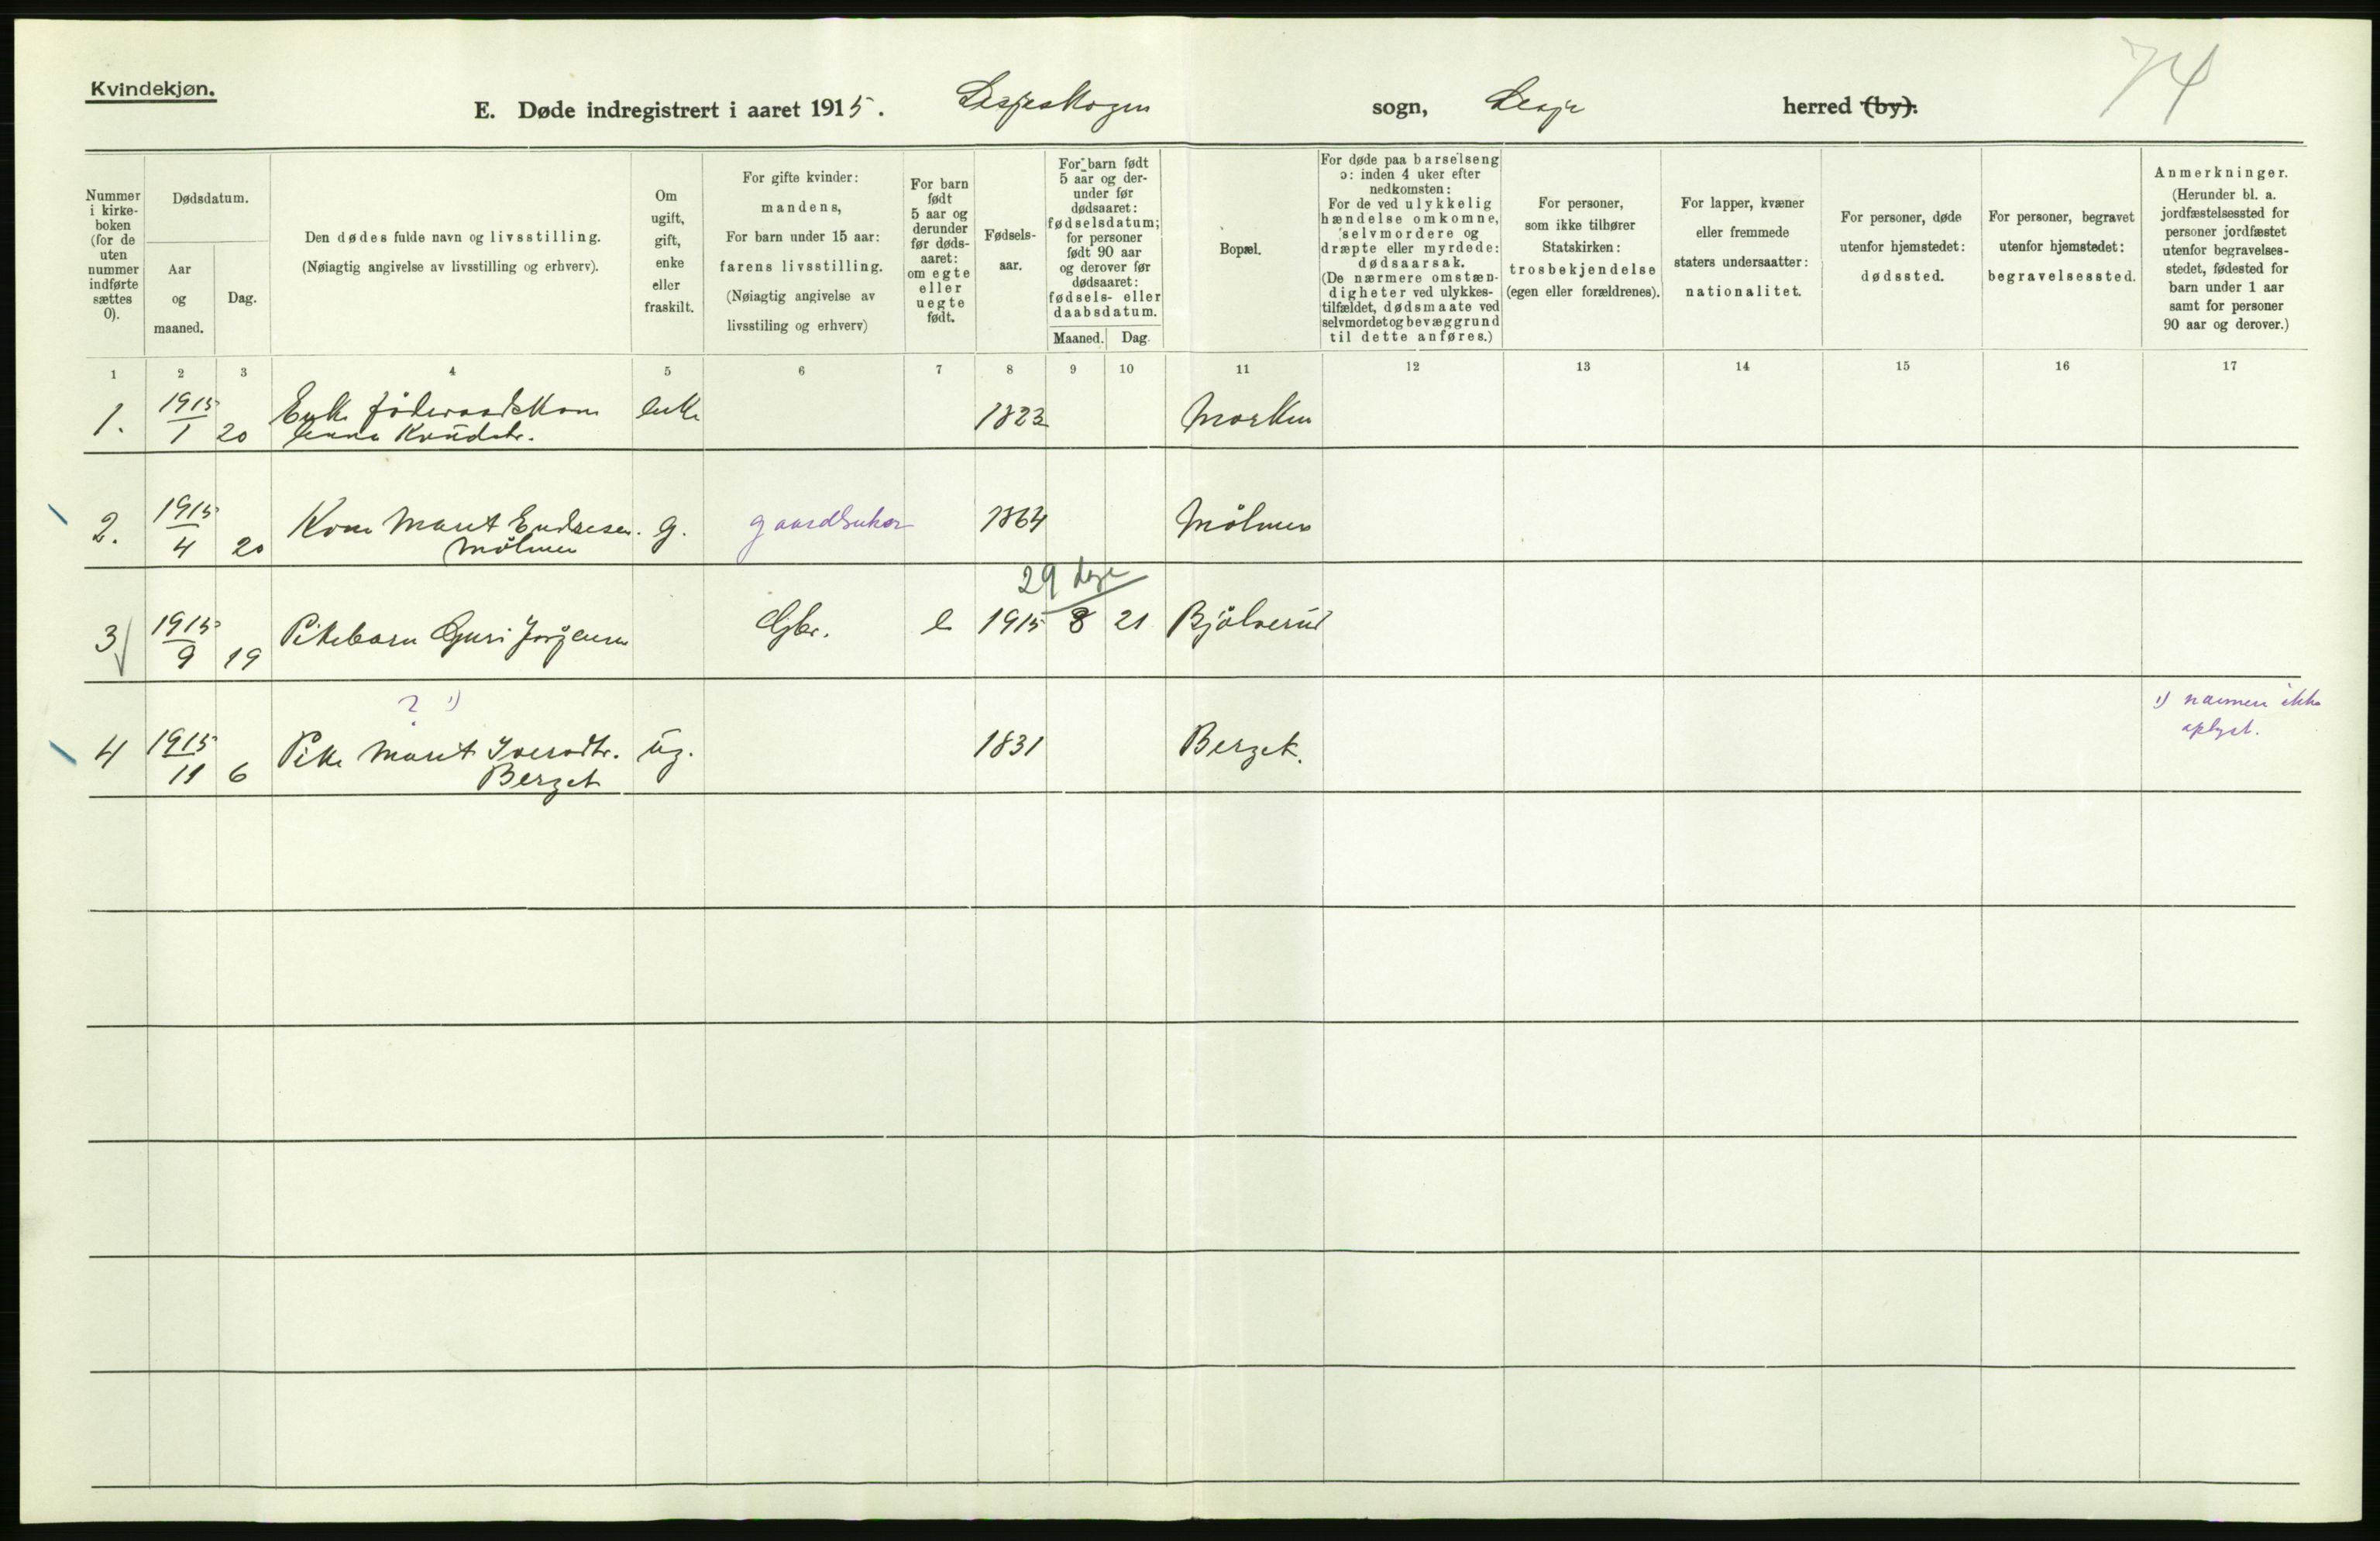 Kvindekjøn.
74
E. Døde indregistrert i aaret 1915. Lesjeskogen sogn, Lesje herred (by).
Nummer i kirke-boken (for de uten nummer indførte sættes 0).
Dødsdatum.
Aar og maaned.
Dag.
Den dødes fulde navn og livsstilling.
(Nøiagtig angivelse av livsstilling og erhverv).
Om ugift, gift, enke eller fraskilt.
For gifte kvinder: mandens, For barn under 15 aar: farens livsstilling. (Nøiagtig angivelse av livsstiling og erhverv)
For barn født 5 aar og derunder før døds-aaret: om egte eller uegte født.
Fødsels-aar.
For barn født 5 aar og der-under før dødsaaret: fødselsdatum; for personer født 90 aar og derover før dødsaaret: fødsels- eller daabsdatum.
Maaned. Dag.
Bopæl.
For døde paa barselseng ɔ: inden 4 uker efter nedkomsten: For de ved ulykkelig hændelse omkomne, selvmordere og dræpte eller myrdede: dødsaarsak. (De nærmere omstæn-digheter ved ulykkes-tilfældet, dødsmaate ved selvmordet og bevæggrund til dette anføres.)
For personer, som ikke tilhører Statskirken: trosbekjendelse (egen eller forældrenes).
For lapper, kvæner eller fremmede staters undersaatter: nationalitet.
For personer, døde utenfor hjemstedet: dødssted.
For personer, begravet utenfor hjemstedet: begravelsessted.
Anmerkninger. (Herunder bl. a. jordfæstelsessted for personer jordfæstet utenfor begravelses-stedet, fødested for barn under 1 aar samt for personer 90 aar og derover.)
1 2 3 4 5 6 7 8 9 10 11 12 13 14 15 16 17
1. 1915/1 20 Enke føderaadskone enke 1823 Morken
Anna Knudsdtr.
2. 1915/4 20 Kone Marit Endresen g. gaardbruker 1864 Mölmen
Mölmen
29 dage
3 1915/9 19 Pikebarn Guri Jørgensen Gbr. e 1915 8 21 Bjölverud
? 1)
1) navnen ikke
oplyst.
4 1915/11 6 Pike Marit Iversdtr. ug. 1831 Berget.
Berget